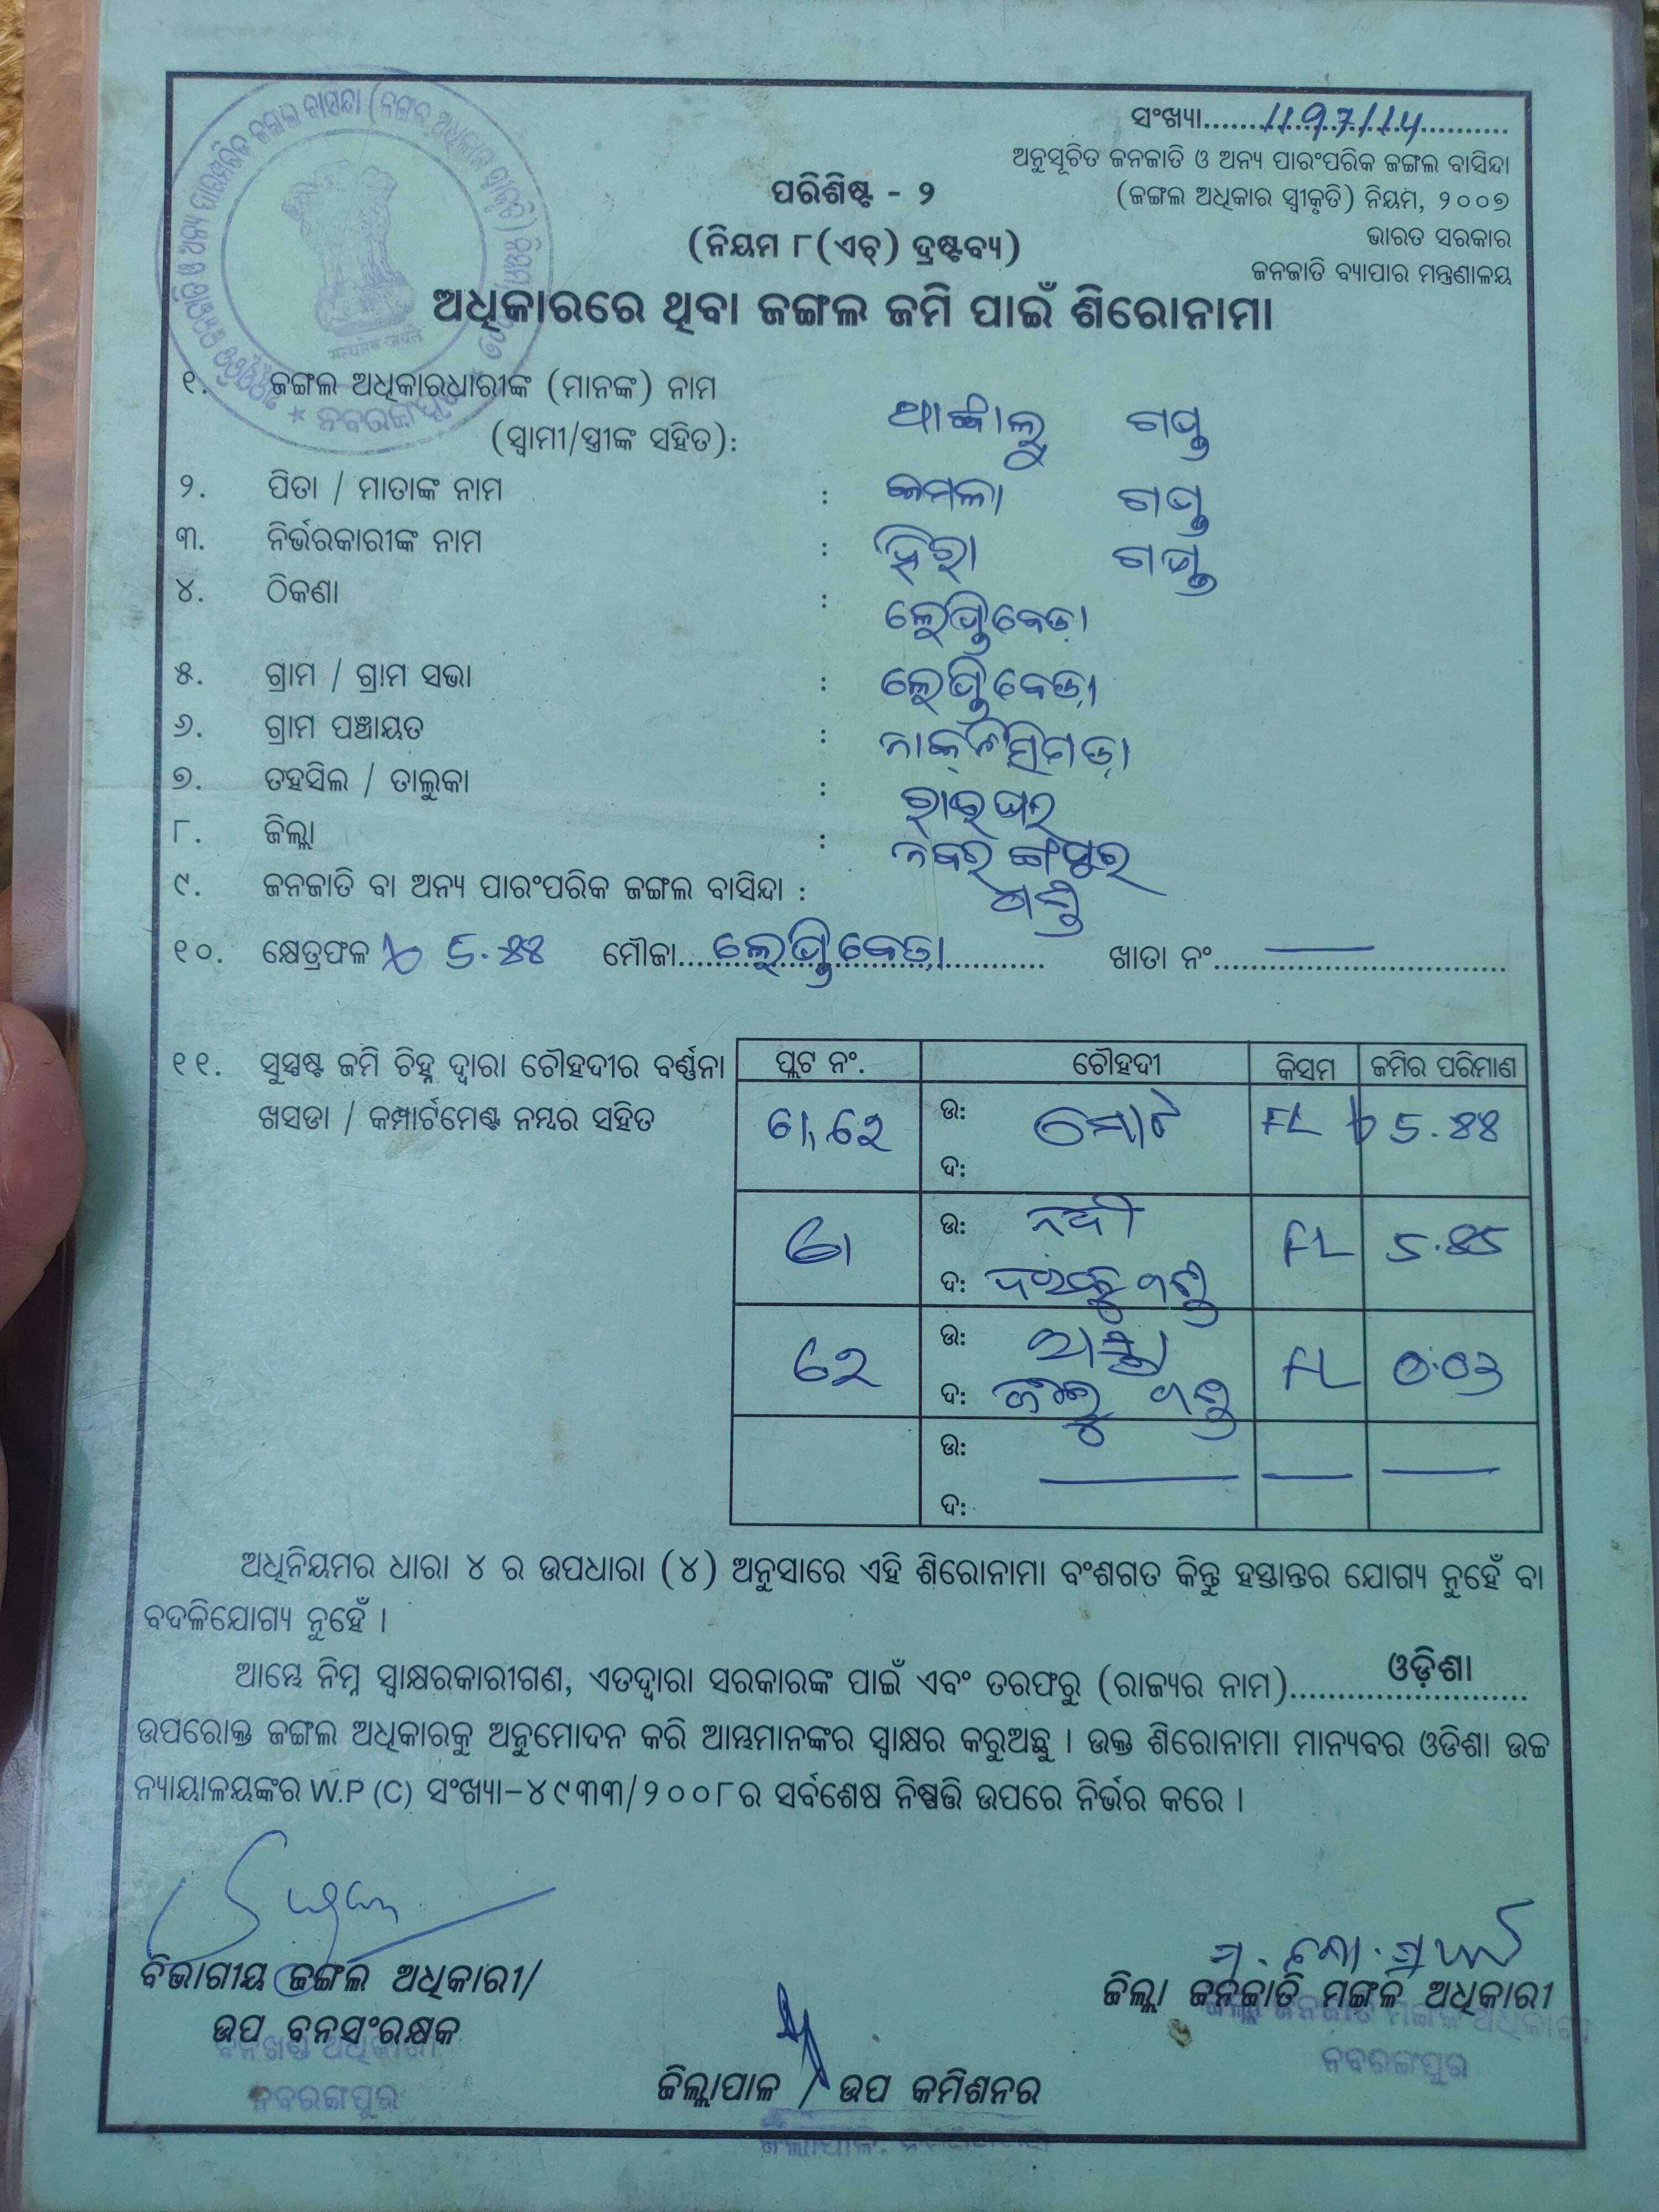 ସଂଖ୍ୟା.....1197/14.....
ଅନୁସୂଚିତ ଜନଜାତି ଓ ଅନ୍ୟ ପାରଂପରିକ ଜଙ୍ଗଲ ବାସିନ୍ଦା
(ଜଙ୍ଗଲ ଅଧିକାର ସ୍ୱୀକୃତି) ନିୟମ, ୨୦୦୭
ଭାରତ ସରକାର
ଜନଜାତି ବ୍ୟାପାର ମନ୍ତ୍ରଣାଳୟ
ପରିଶିଷ୍ଟ - ୨
(ନିୟମ ୮(ଏଚ୍) ଦ୍ରଷ୍ଟବ୍ୟ)
ଅଧିକାରରେ ଥିବା ଜଙ୍ଗଲ ଜମି ପାଇଁ ଶିରୋନାମା
୧. ଜଙ୍ଗଲ ଅଧିକାରଧାରୀଙ୍କ (ମାନଙ୍କ) ନାମ
(ସ୍ୱାମୀ/ସ୍ତ୍ରୀଙ୍କ ସହିତ):
୨. ପିତା / ମାତାଙ୍କ ନାମ : କମଳା ଗଣ୍ଡ
୩. ନିର୍ଭରକାରୀଙ୍କ ନାମ : ହିରା ଗଣ୍ଡ
୪. ଠିକଣା :
୫. ଗ୍ରାମ / ଗ୍ରାମ ସଭା :
୬. ଗ୍ରାମ ପଞ୍ଚାୟତ :
୭. ତହସିଲ / ତାଲୁକା : ରାଇଘର
୮. ଜିଲ୍ଲା : ନବରଙ୍ଗପୁର
୯. ଜନଜାତି ବା ଅନ୍ୟ ପାରଂପରିକ ଜଙ୍ଗଲ ବାସିନ୍ଦା : ଗଣ୍ଡ
୧୦. କ୍ଷେତ୍ରଫଳ 5.୪୪ ମୌଜା..... ଖାତା ନଂ.....
୧୧. ସୁସ୍ପଷ୍ଟ ଜମି ଚିହ୍ନ ଦ୍ୱାରା ଚୌହଦୀର ବର୍ଣ୍ଣନା
ଖସଡା / କମ୍ପାର୍ଟମେଣ୍ଟ ନମ୍ବର ସହିତ
ପ୍ଲଟ ନଂ. ଚୌହଦୀ କିସମ ଜମିର ପରିମାଣ
ଉ: ମୋଟ FL 5.୪୪
ଦ:
ଉ: ନଦୀ FL
ଦ: ଗଣ୍ଡ
ଉ: FL 0.03
ଦ: ଗଣ୍ଡ
ଉ:
ଦ:
ଅଧିନିୟମର ଧାରା ୪ ର ଉପଧାରା (୪) ଅନୁସାରେ ଏହି ଶିରୋନାମା ବଂଶଗତ କିନ୍ତୁ ହସ୍ତାନ୍ତର ଯୋଗ୍ୟ ନୁହେଁ ବା
ବଦଳିଯୋଗ୍ୟ ନୁହେଁ ।
ଆମ୍ଭେ ନିମ୍ନ ସ୍ୱାକ୍ଷରକାରୀଗଣ, ଏତଦ୍ୱାରା ସରକାରଙ୍କ ପାଇଁ ଏବଂ ତରଫରୁ (ରାଜ୍ୟର ନାମ).....ଓଡ଼ିଶା.....
ଉପରୋକ୍ତ ଜଙ୍ଗଲ ଅଧିକାରକୁ ଅନୁମୋଦନ କରି ଆମ୍ଭମାନଙ୍କର ସ୍ୱାକ୍ଷର କରୁଅଛୁ । ଉକ୍ତ ଶିରୋନାମା ମାନ୍ୟବର ଓଡିଶା ଉଚ୍ଚ
ନ୍ୟାୟାଳୟଙ୍କର W.P (C) ସଂଖ୍ୟା-୪୯୩୩/୨୦୦୮ର ସର୍ବଶେଷ ନିଷ୍ପତ୍ତି ଉପରେ ନିର୍ଭର କରେ ।
ବିଭାଗୀୟ ଜଙ୍ଗଲ ଅଧିକାରୀ/
ଉପ ବନସଂରକ୍ଷକ
ବନଖଣ୍ଡ ଅଧିକାରୀ
ନବରଙ୍ଗପୁର
ଜିଲ୍ଲାପାଳ / ଉପ କମିଶନର
ଜିଲ୍ଲା ଜନଜାତି ମଙ୍ଗଳ ଅଧିକାରୀ
ଜିଲ୍ଲା ଜନଜାତି ମଙ୍ଗଳ ଅଧିକାରୀ
ନବରଙ୍ଗପୁର